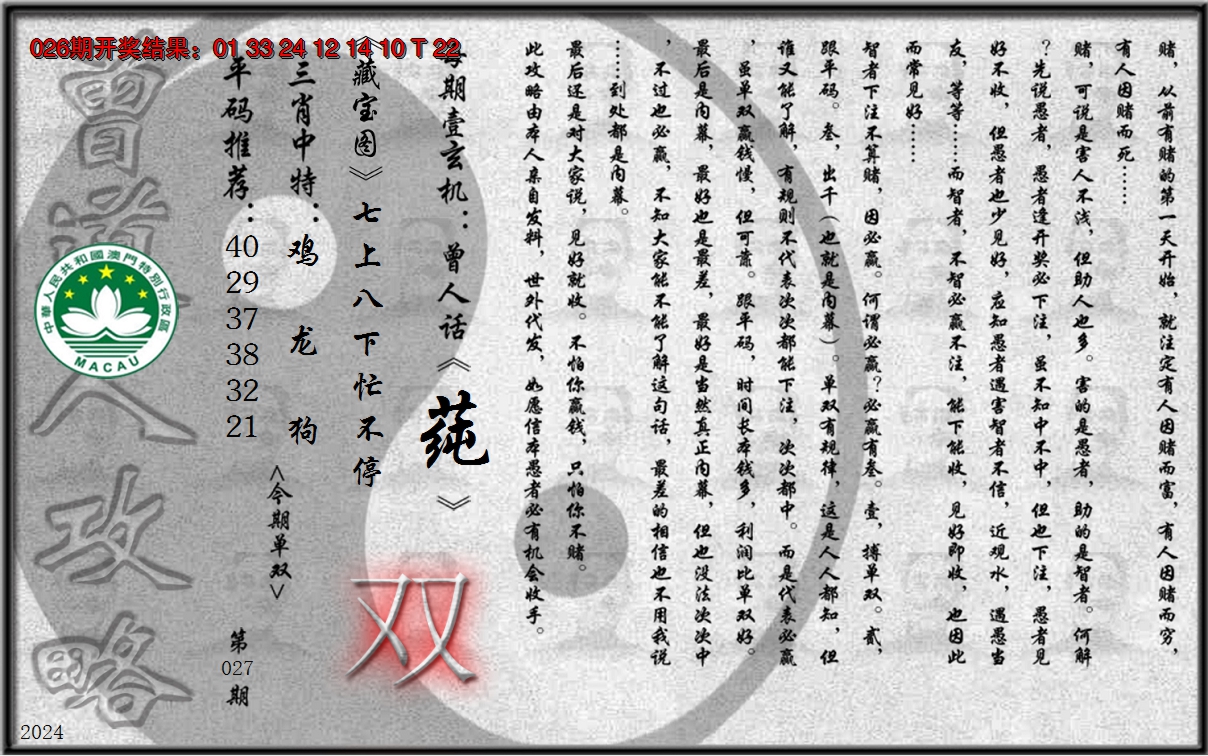 026期开奖结果：01 33 24 12 14 10 T 22
赌，从前有赌的第一天开始，就注定有人因赌而富，有人因赌而穷，
有人因赌而死……
赌，可说是害人不浅，但助人也多。害的是愚者，助的是智者。何解
？先说愚者，愚者逢开奖必下注，虽不知中不中，但也下注，愚者见
好不收，但愚者也少见好，应知愚者遇害智者不信，近观水，遇愚当
友，等等……而智者，不智必赢不注，能下能收，见好即收，也因此
而常见好……
智者下注不算赌，因必赢。何谓必赢？必赢有叁。壹，搏单双。贰，
跟平码。叁，出千（也就是内幕）。单双有规律，这是人人都知，但
谁又能了解，有规则不代表次次都能下注，次次都中。而是代表必赢
，虽单双赢钱慢，但可靠。跟平码，时间长本钱多，利润比单双好。
最后是内幕，最好也是最差，最好是当然真正内幕，但也没法次次中
，不过也必赢，不知大家能不能了解这句话，最差的相信也不用我说
……到处都是内幕。
最后还是对大家说，见好就收。不怕你赢钱，只怕你不赌。
此攻略由本人亲自发料，世外代发，如愿信本愚者必有机会收手。
每期壹玄机：曾人话《莼》
《藏宝图》七上八下忙不停
双
三肖中特：鸡 龙 狗
<今期单双>
平码推荐：40 29 37 38 32 21
第027期
曾道人攻略
中華人民共和國澳門特別行政區
MACAU
2024